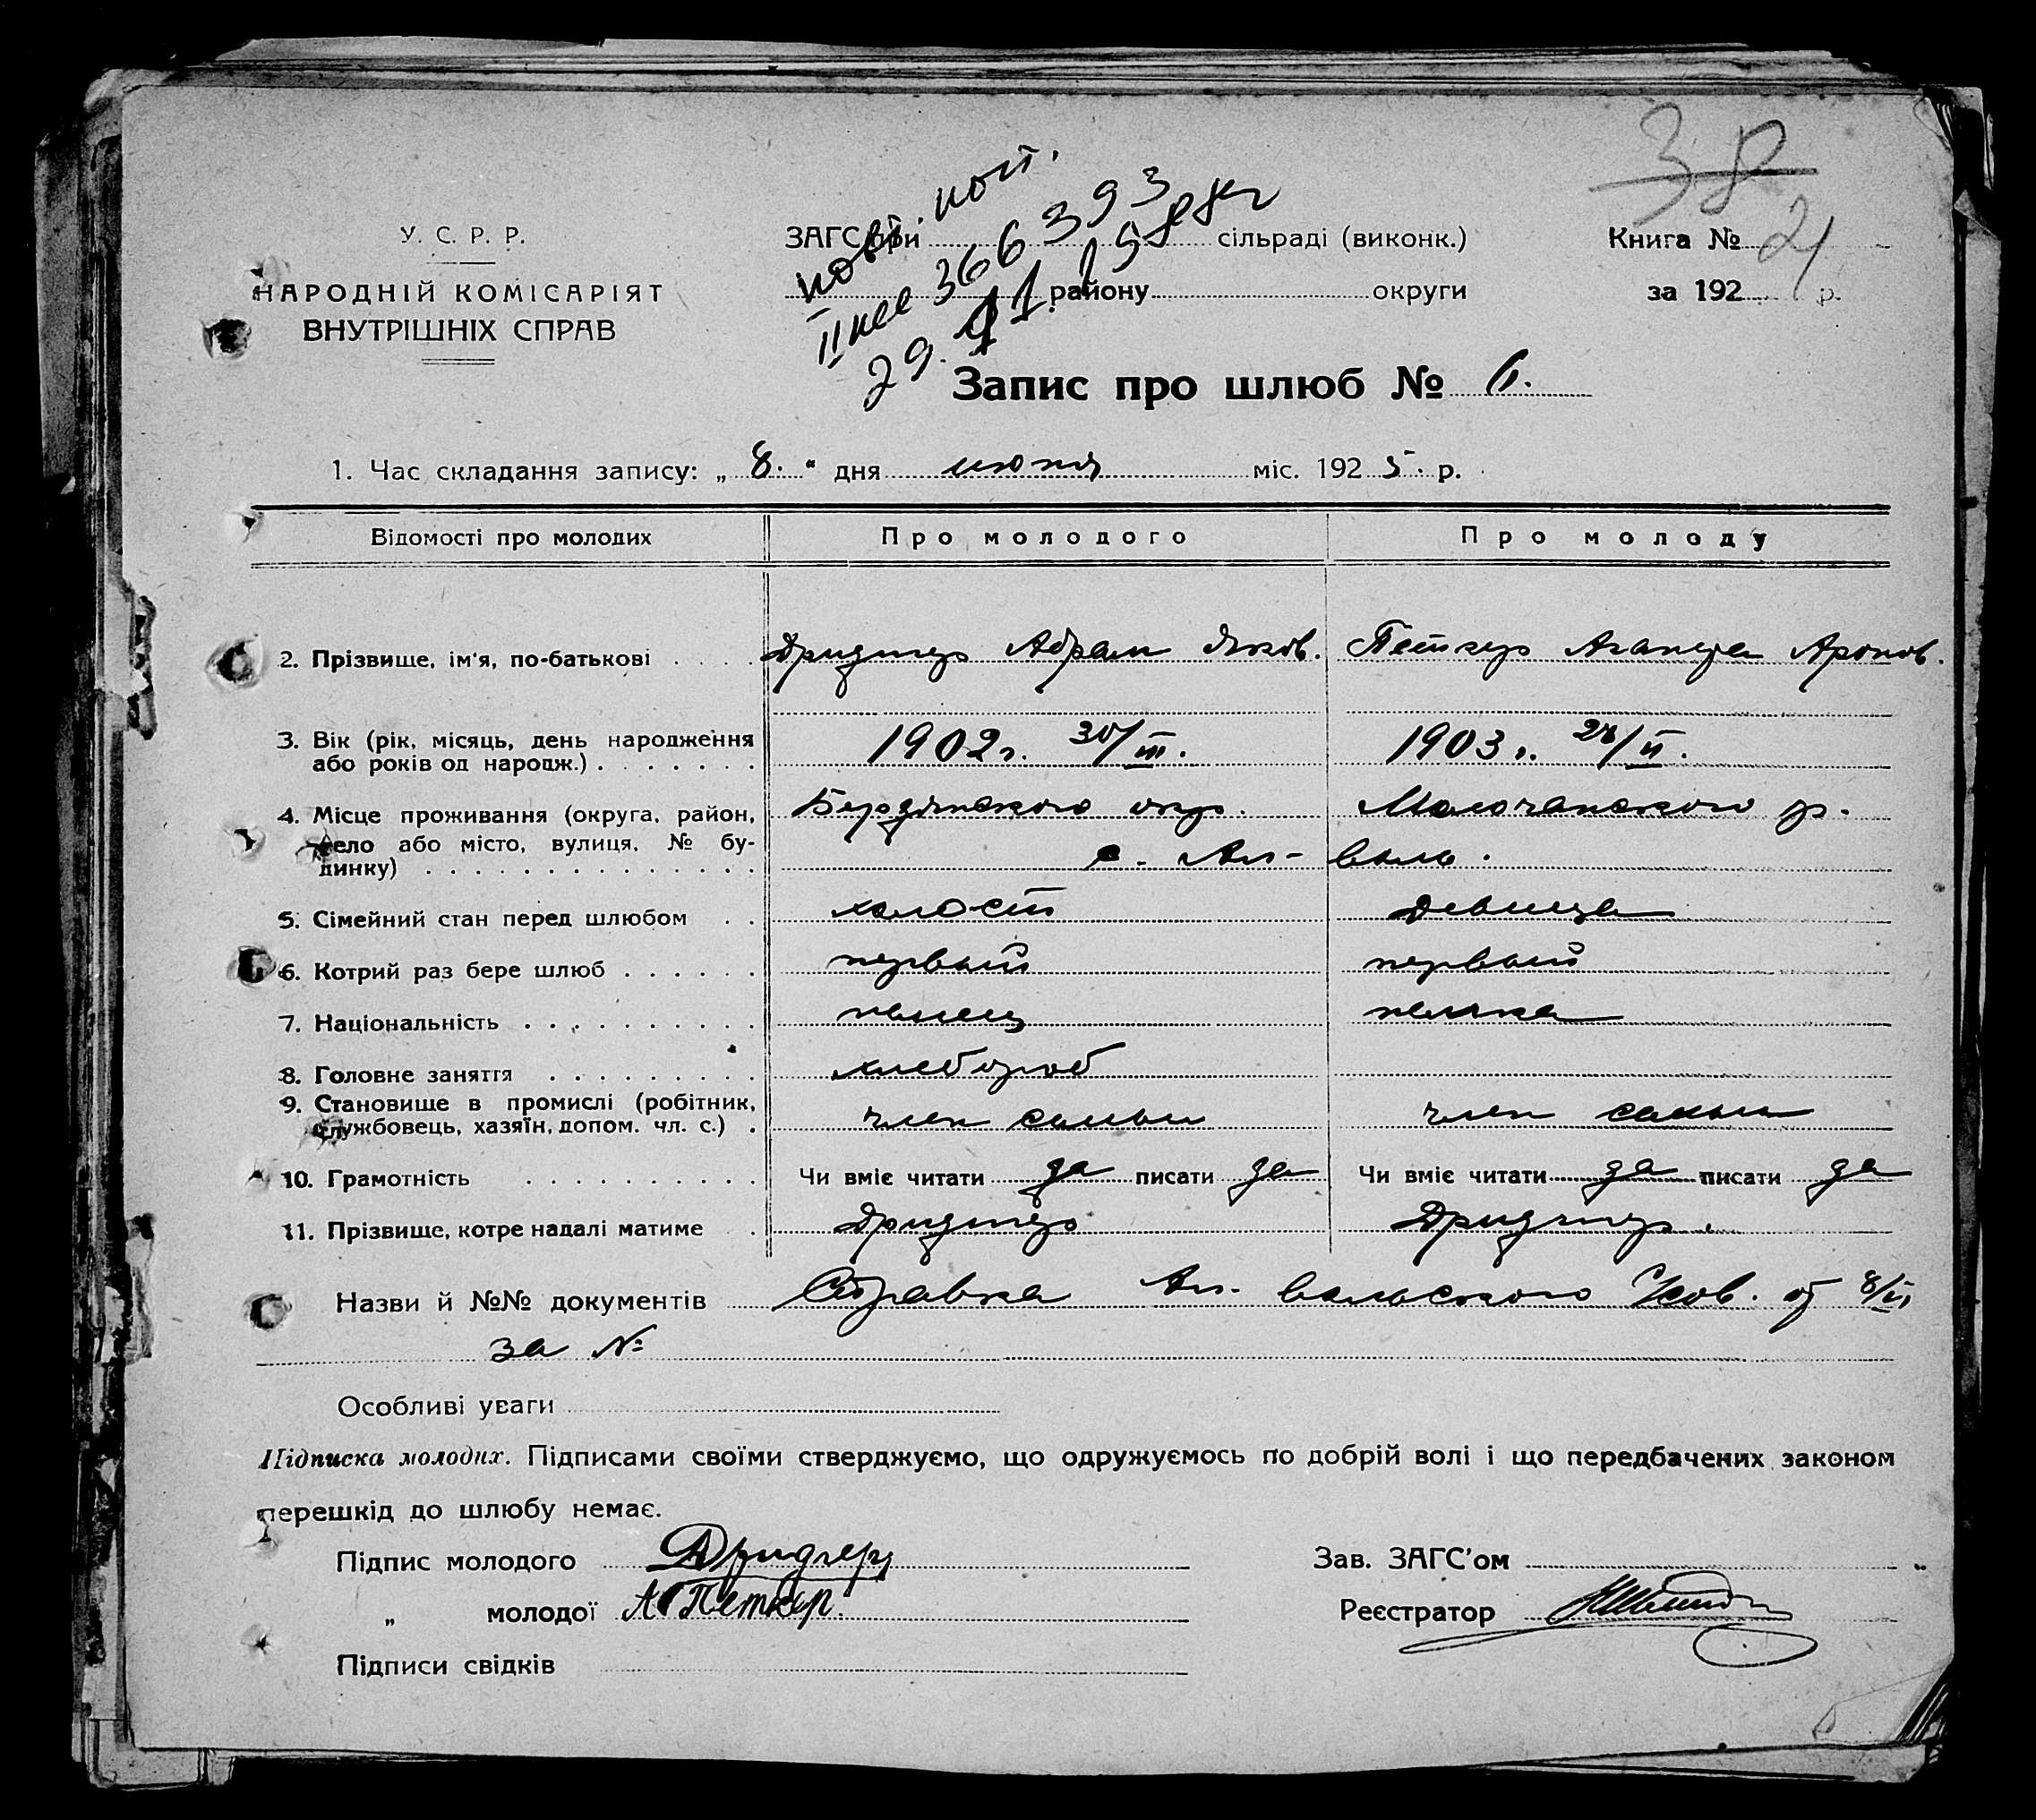 38
У. С. Р. Р.
НАРОДНІЙ КОМІСАРІЯТ
ВНУТРІШНІХ СПРАВ
ЗАГС при сільраді (виконк.)
району округи
Книга № 21
за 192 р.
повт.
II 366393
29.
Запис про шлюб № 6.
1. Час складання запису: „ 8. “ дня июня міс. 1925. р.
Відомості про молодих Про молодого Про молоду
2. Прізвище, ім'я, по-батькові Дридгер Абрам Яков. Петкер Аганета Аронов.
3. Вік (рік, місяць, день народження 1902 г. 30/III. 1903 г. 28/II.
або років од народж.)
4. Місце проживання (округа, район, Бердянского окр. Молочанского р.
село або місто, вулиця, № бу- с. Ал- валь.
динку)
5. Сімейний стан перед шлюбом холост девица
6. Котрий раз бере шлюб первый первый
7. Національність немец немка
8. Головне заняття хлебороб
9. Становище в промислі (робітник, член семьи член семьи
службовець, хазяїн, допом. чл. с.)
10. Грамотність Чи вміє читати да писати да Чи вміє читати да писати да
11. Прізвище, котре надалі матиме Дридгер Дридгер.
Назви й №№ документів Справка Ал. вальского от 8/VI
за №
Особливі уваги
Підписка молодих. Підписами своїми стверджуємо, що одружуємось по добрій волі і що передбачених законом
перешкід до шлюбу немає.
Підпис молодого АДридгер Зав. ЗАГС'ом
„ молодої А Петкер. Реєстратор
Підписи свідків